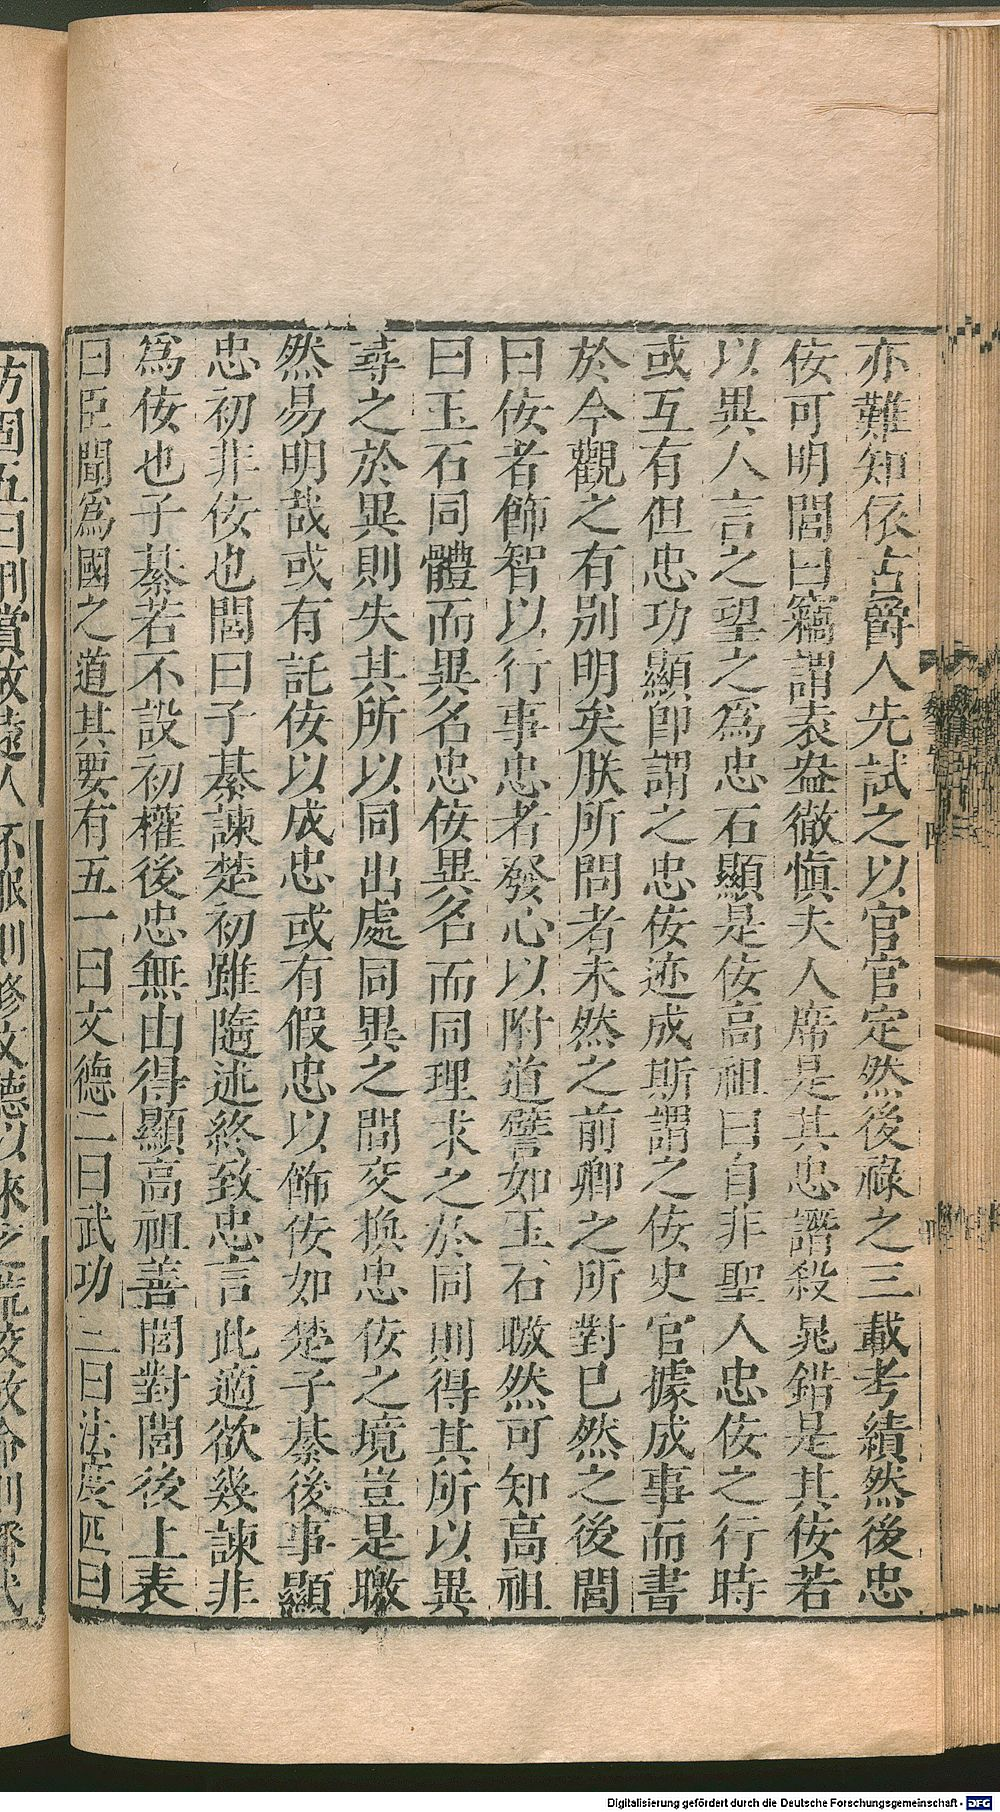 亦難知依古爵人先試之以官官定然後祿之三載考績然後忠
佞可明閭曰竊謂袁盎徹愼夫人席是其忠譖殺晁錯是其佞若
以異人言之望之爲忠石顯是佞高祖曰自非聖人忠佞之行時
或互有但忠功顯卽謂之忠佞迹成斯謂之佞史官據成事而書
於今觀之有別明矣朕所問者未然之前卿之所對已然之後閭
曰佞者飾智以行事忠者發心以附道譬如玉石皦然可知高祖
曰玉石同體而異名忠佞異名而同理求之於同則得其所以異
尋之於異則失其所以同出處同異之間交換忠佞之境豈是皦
然易明哉或有託佞以成忠或有假忠以飾佞如楚子綦後事顯
忠初非佞也閭曰子綦諫楚初雖隨述終致忠言此適欲幾諫非
爲佞也子綦若不設初權後忠無由得顯高祖善閭對閭後上表
曰臣聞爲國之道其要有五一曰文德二曰武功三曰法度四曰
方固五曰刑賞故遠人不服則修文德以來之荒狡放命則
Digitalisierung gefördert durch die Deutsche Forschungsgemeinschaft - DFG